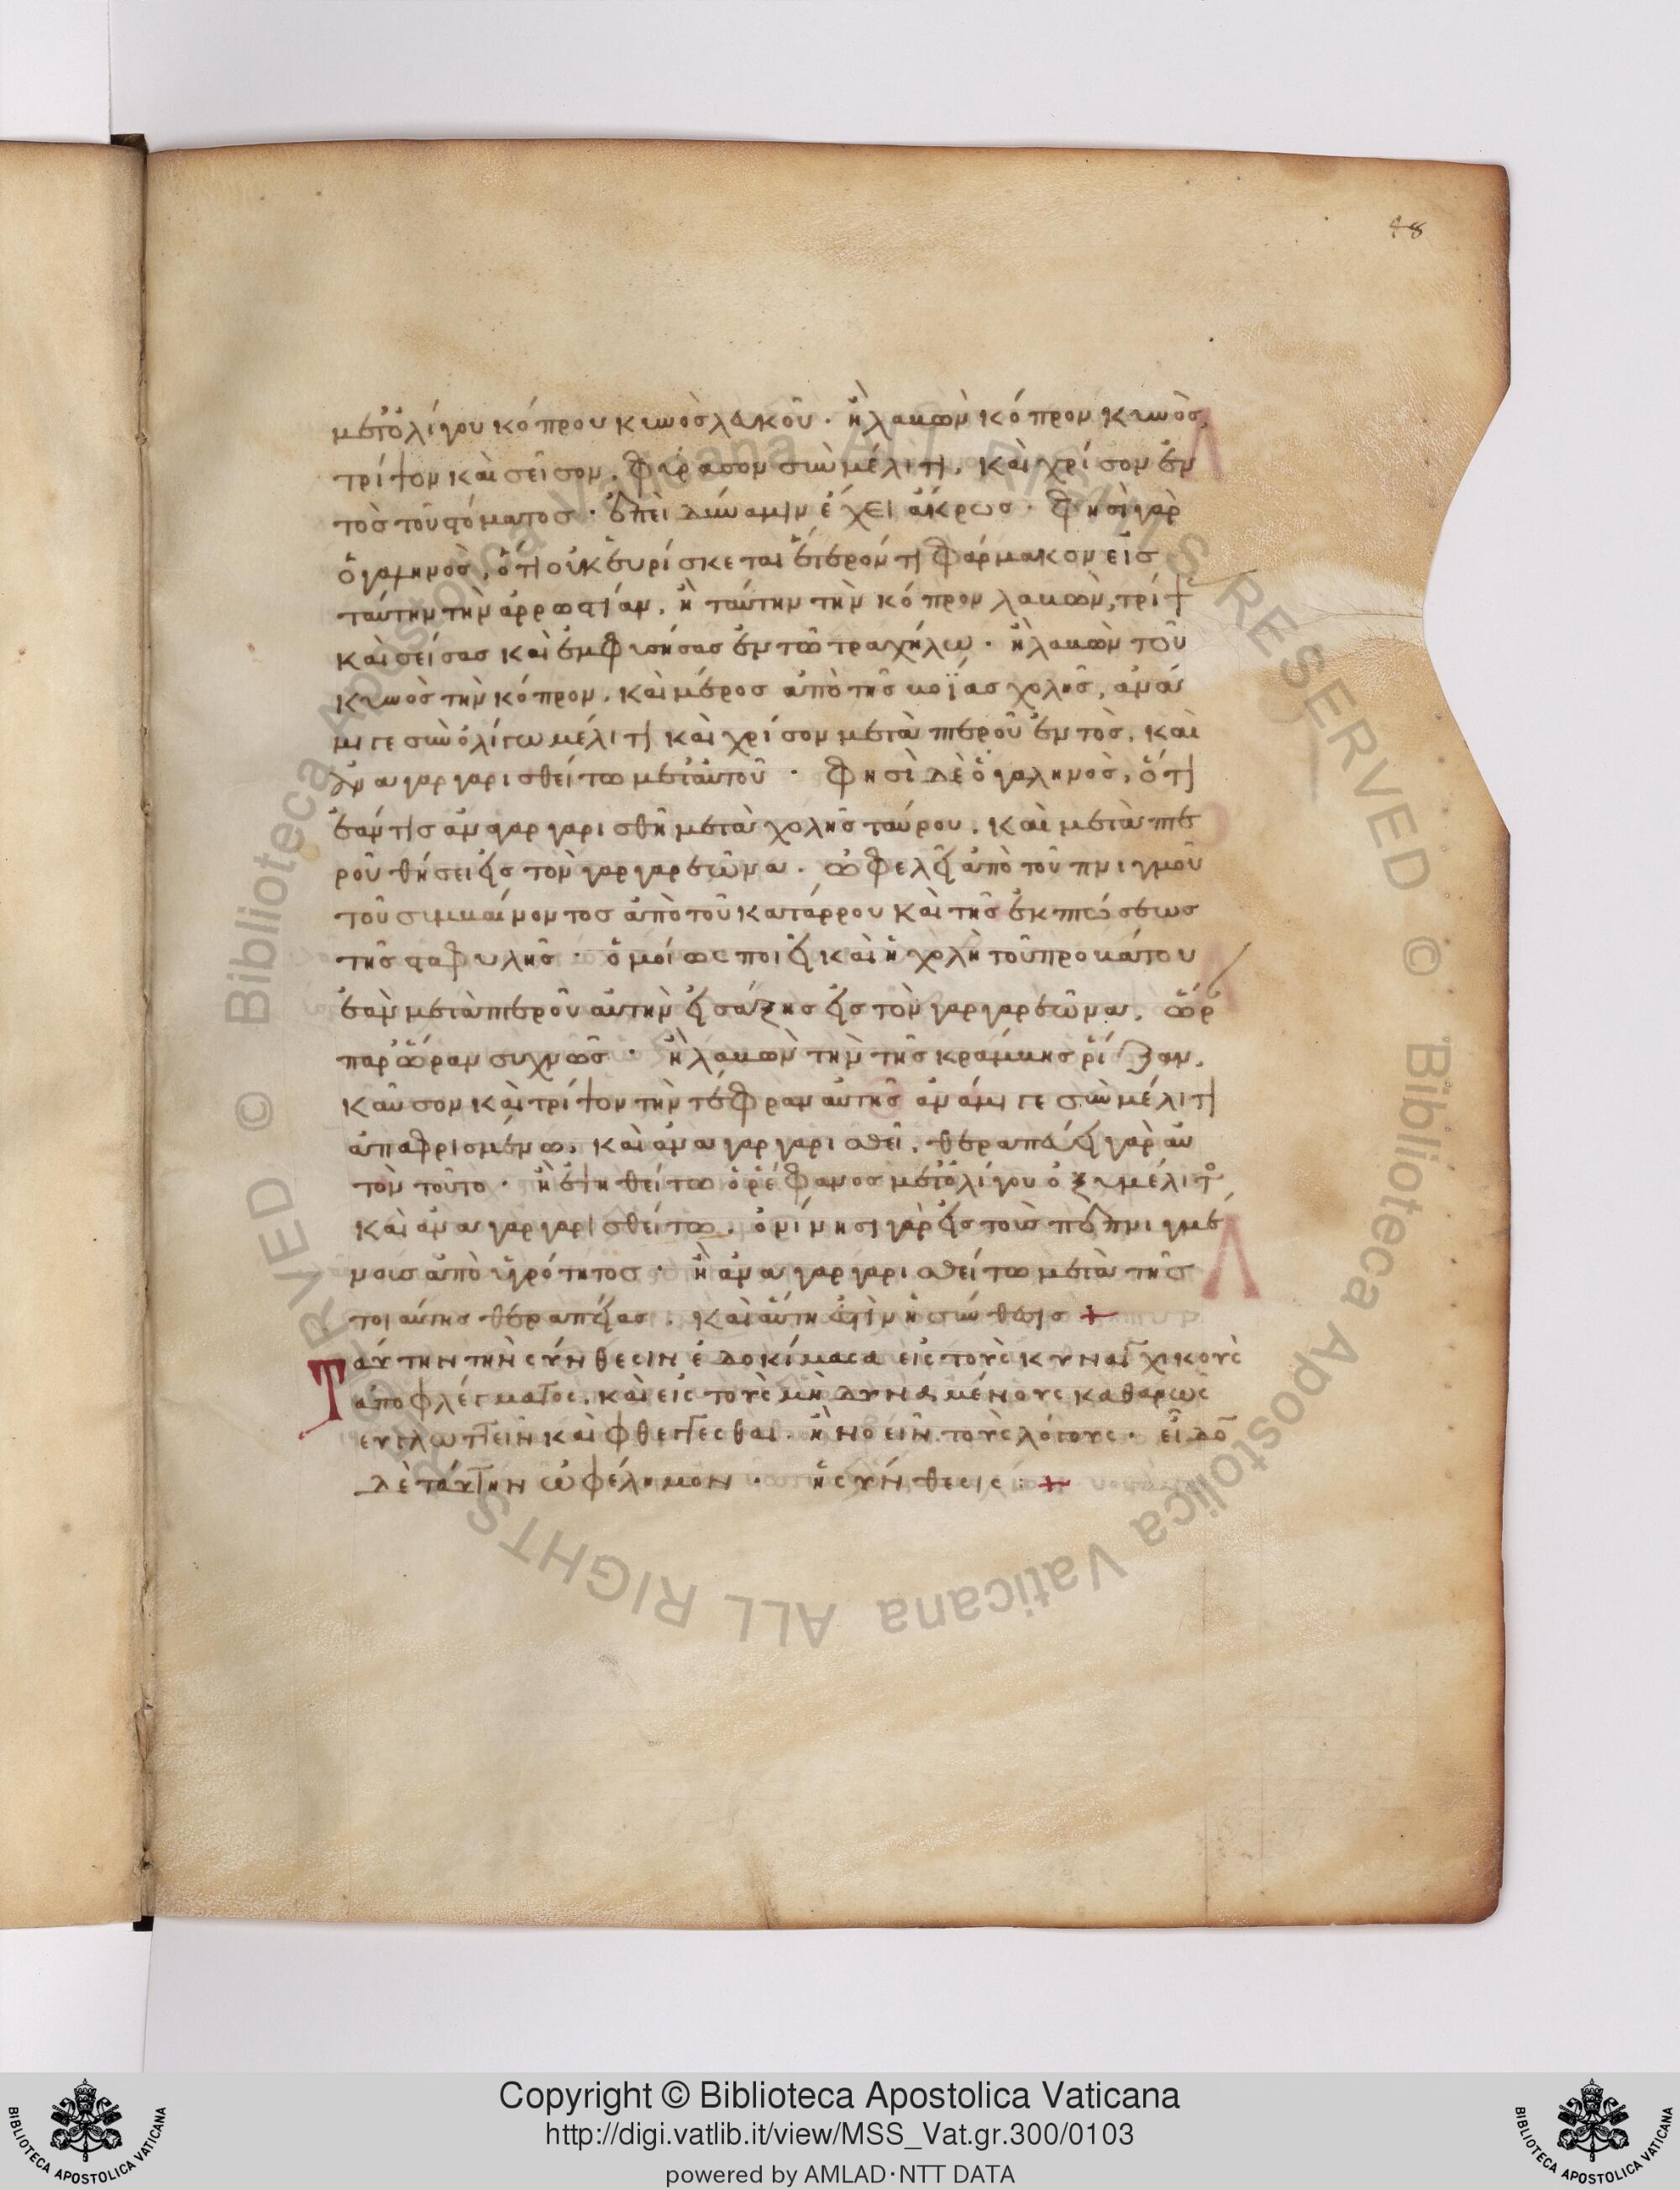 48
μετ' ὀλίγου κόπρου κυνὸς λευκοῦ · ἢ λαβὼν κόπρον κυνὸς,
τρίψον καὶ σεῖσον, φύρασον σὺν μέλιτι, καὶ χρίσον ἐν
τὸς τοῦ στόματος · ἐπεὶ δύναμιν ἔχει ἄκρως · φησὶ γὰρ
ὁ γαληνὸς, ὅτι οὐκ εὑρίσκεται ἕτερόν τι φάρμακον εἰς
ταύτην τὴν ἀρρωστίαν, ἢ ταύτην τὴν κόπρον λαβὼν, τρίψ
καὶ σείσας καὶ ἐμφυσήσας ἐν τῶ τραχήλω · ἢ λαβὼν τοῦ
κυνὸς τὴν κόπρον, καὶ μέρος ἀπὸ τῆς βοΐας χολῆς, ἀνά
μιγε σὺν ὀλίγω μέλιτι καὶ χρίσον μετὰ πτεροῦ ἐντὸς, καὶ
ἀναγαργαρισθείτω μετ' αὐτοῦ · φησὶ δὲ ὁ γαληνὸς, ὅτι
ἐάν τις ἀναγαργαρισθῆ μετὰ χολῆς ταύρου, καὶ μετὰ πτε
ροῦ θήσει εἰς τὸν γαργαρεῶνα · ὠφελεῖ ἀπὸ τοῦ πνιγμοῦ
τοῦ συμβαίνοντος ἀπὸ τοῦ κατάρρου καὶ τῆς ἐκπτώσεως
τῆς σταφυλῆς · ὁμοίως ποιεῖ καὶ ἡ χολὴ τοῦ προβάτου
ἐὰν μετὰ πτεροῦ αὐτὴν εἰσάξης εἰς τὸν γαργαρεῶνα, ὥρ
παρ' ὥραν συχνῶς · ἢ λαβὼν τὴν τῆς κράμβης ῥίζαν,
καῦσον καὶ τρίψον τὴν τέφραν αὐτῆς ἀνάμιγε σὺν μέλιτι
ἀπαφρισμένω, καὶ ἀναγαργαρισθεῖ, θεραπεύει γὰρ αὐ
τὸν τοῦτο · ἢ ἑψηθείτω ὀρέφανος μετ' ὀλίγου ὀξυμέλιτ
καὶ ἀναγαργαρισθείτω, ὀνίνησι γὰρ εἰς τοὺς πεπνιγμέ
νους ἀπὸ ὑγρότητος · ἢ ἀναγαργαρισθείτω μετὰ τῆς
τοιαύτης θεραπείας · καὶ αὕτη ἐστὶν ἡ σύνθεσις +
Ταύτην τὴν σύνθεσιν ἐδοκίμασα εἰς τοὺς κυναγχικοὺς
ἀπὸ φλέγματος, καὶ εἰς τοὺς μὴ δυναμένους καθαρῶς
εὐγλωττεῖν καὶ φθέγγεσθαι · ἢ νοεῖν τοὺς λόγους · εἶδο
δὲ ταύτην ὠφέλημον · ἡ σύνθεσις : +
Copyright © Biblioteca Apostolica Vaticana
http://digi.vatlib.it/view/MSS_Vat.gr.300/0103
powered by AMLAD·NTT DATA
BIBLIOTECA APOSTOLICA VATICANA
BIBLIOTECA APOSTOLICA VATICANA
© Biblioteca Apostolica Vaticana ALL RIGHTS RESERVED
© Biblioteca Apostolica Vaticana ALL RIGHTS RESERVED